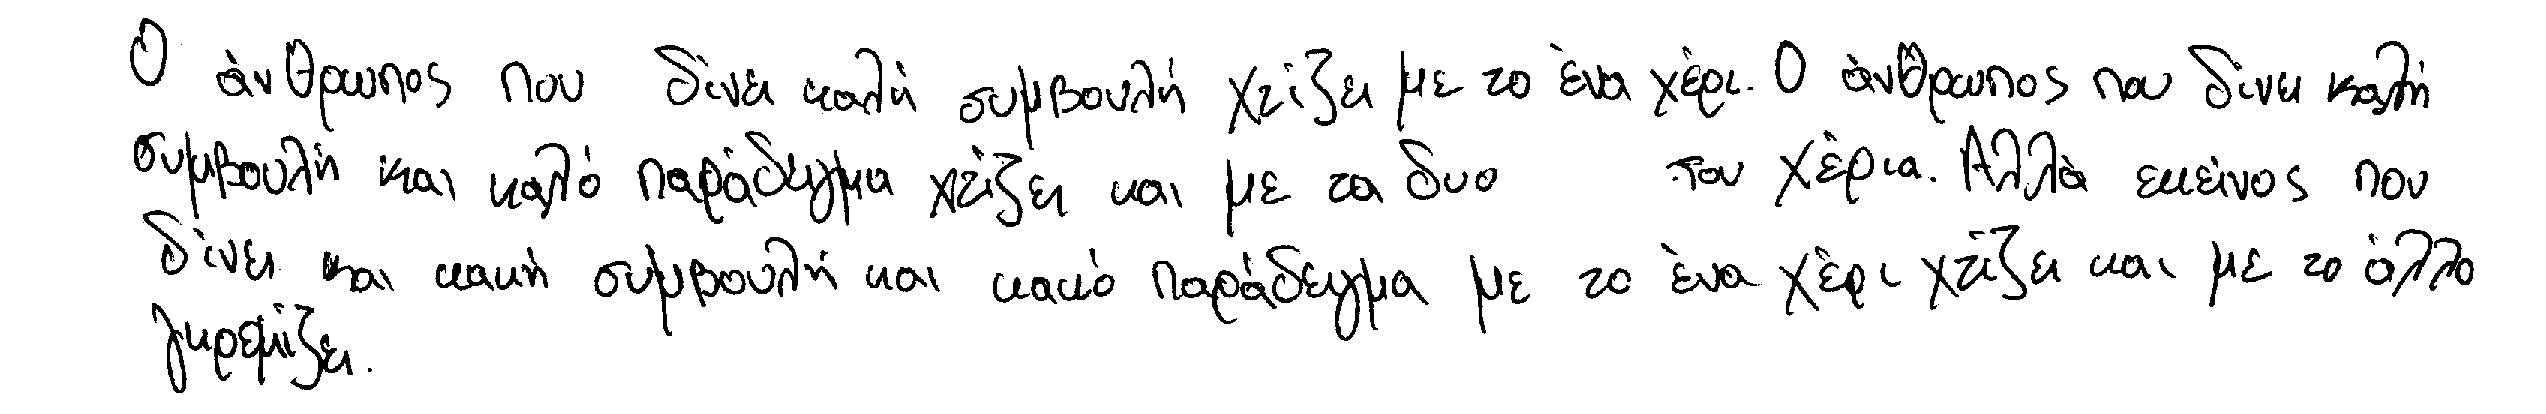 Ο άνθρωπος που δίνει καλή συμβουλή χτίζει με το ένα χέρι. Ο άνθρωπος που δίνει καλή
συμβουλή και καλό παράδειγμα χτίζει και με τα δυο του χέρια. Αλλά εκείνος που
δίνει και κακή συμβουλή και κακό παράδειγμα με το ένα χέρι χτίζει και με το άλλο
γκρεμίζει.